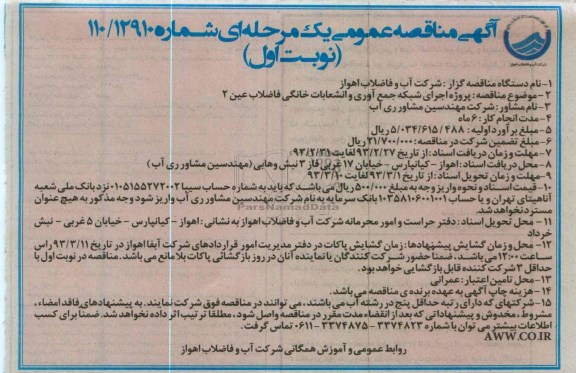 آگهی مناقصه عمومی یک مرحله‌ای شماره ۱۱۰/۱۳۹۱۰
(نوبت اول)
۱- نام دستگاه مناقصه گزار: شرکت آب و فاضلاب اهواز
۲- موضوع مناقصه: پروژه اجرای شبکه جمع آوری و انشعابات خانگی فاضلاب عین ۲
۳- نام مشاور: شرکت مهندسین مشاور ری آب
۴- مدت انجام کار: ۶ ماه
۵- مبلغ برآورد اولیه: ۵/۰۳۴/۶۱۵/۴۸۸ ریال
۶- مبلغ تضمین شرکت در مناقصه: ۲۱/۷۰۰/۰۰۰ ریال
۷- مهلت و زمان دریافت اسناد: از تاریخ ۹۳/۲/۲۷ لغایت ۹۳/۲/۳۱
۸- محل دریافت اسناد: اهواز - کیانپارس - خیابان ۱۷ غربی فاز ۳ نبش وهابی (مهندسین مشاور ری آب)
۹- مهلت و زمان تحویل اسناد: از تاریخ ۹۳/۳/۱ لغایت ۹۳/۳/۱۰
۱۰- قیمت اسناد و نحوه واریز وجه به مبلغ ۵۰۰/۰۰۰ ریال می باشد که باید به شماره حساب سیبا ۰۱۰۵۱۵۵۲۷۲۰۰۲ نزد بانک ملی شعبه
آناهیتای تهران و یا حساب ۱۰۳۵۸۱۰۶۰۰۱۰۰۱ بانک سرمایه به نام شرکت مهندسین مشاور ری آب واریز شود وجه مذکور به هیچ عنوان
مسترد نخواهد شد.
۱۱- محل تحویل اسناد: دفتر حراست و امور محرمانه شرکت آب و فاضلاب اهواز به نشانی: اهواز - کیانپارس - خیابان ۵ غربی - نبش
خرداد
۱۲- محل و زمان گشایش پیشنهادها: زمان گشایش پاکات در دفتر مدیریت امور قراردادهای شرکت آبفا اهواز در تاریخ ۹۳/۳/۱۱ راس
ساعت ۱۲:۰۰ می باشد. ضمنا حضور شرکت کنندگان یا نماینده آنان در روز بازگشائی پاکات بلامانع می باشد. مناقصه در نوبت اول با
حداقل ۳ شرکت کننده قابل بازگشایی خواهد بود.
۱۳- محل تامین اعتبار: عمرانی
۱۴- هزینه چاپ آگهی به عهده برنده ی مناقصه می باشد.
۱۵- شرکتهای که دارای رتبه حداقل پنج در رشته آب می باشند، می توانند در مناقصه فوق شرکت نمایند. به پیشنهادهای فاقد امضاء،
مشروط، مخدوش و پیشنهاداتی که بعد از انقضاء مدت مقرر در مناقصه واصل شود، مطلقا ترتیب اثر داده نخواهد شد. ضمنا برای کسب
اطلاعات بیشتر می توان با شماره ۳۳۷۴۸۲۳ - ۳۳۷۴۸۷۵-۰۶۱۱ تماس گرفت.
AWW.CO.IR
روابط عمومی و آموزش همگانی شرکت آب و فاضلاب اهواز
ParsNamadData